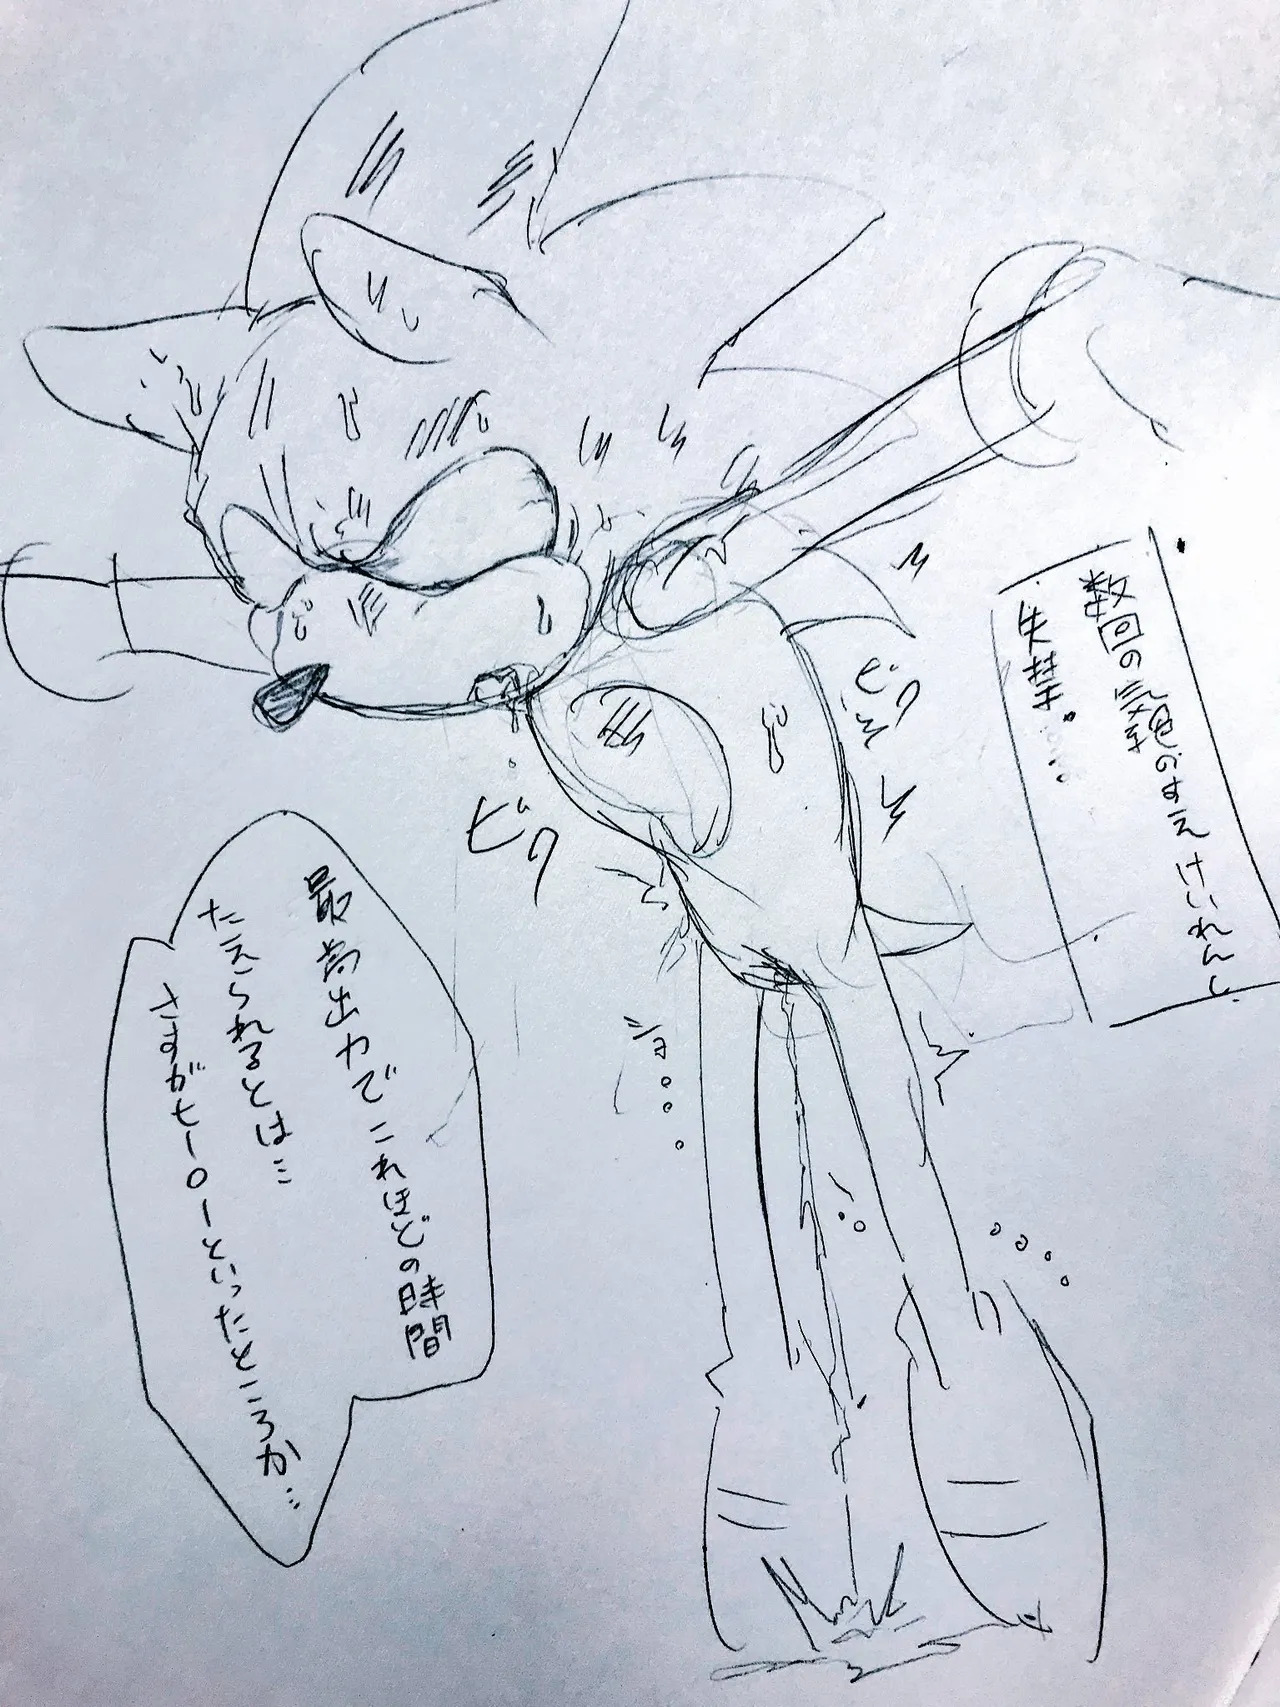 数回の気絶のすえけいれんし
失禁。
ビク
ビク
ショ...
最高出力でこれほどの時間
たえられるとは…
さすがヒーローといったところか…